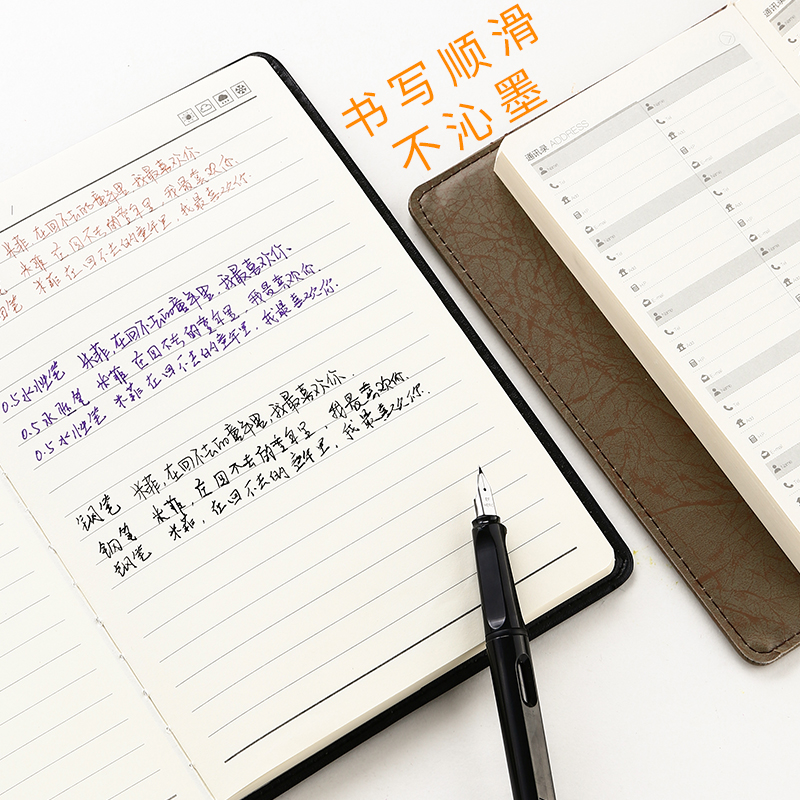 书写顺滑
不沁墨
米菲,在回不去的童年里,我最喜欢你.
米菲,在回不去的童年里,我最喜欢你.
笔 米菲在回不去的童年里,我最喜欢你.
0.5水性笔 米菲,在回不去的童年里,我最喜欢你、
0.5水性笔 米菲,在回不去的童年里,我最喜欢你.
0.5水性笔 米菲,在回不去的童年里,我最喜欢你.
钢笔 米菲,在回不去的童年里,我最喜欢你.
钢笔 米菲,在回不去的童年里,我最喜欢你.
钢笔 米菲,在回不去的童年里,我最喜欢你.
通讯录 ADDRESS
通讯录